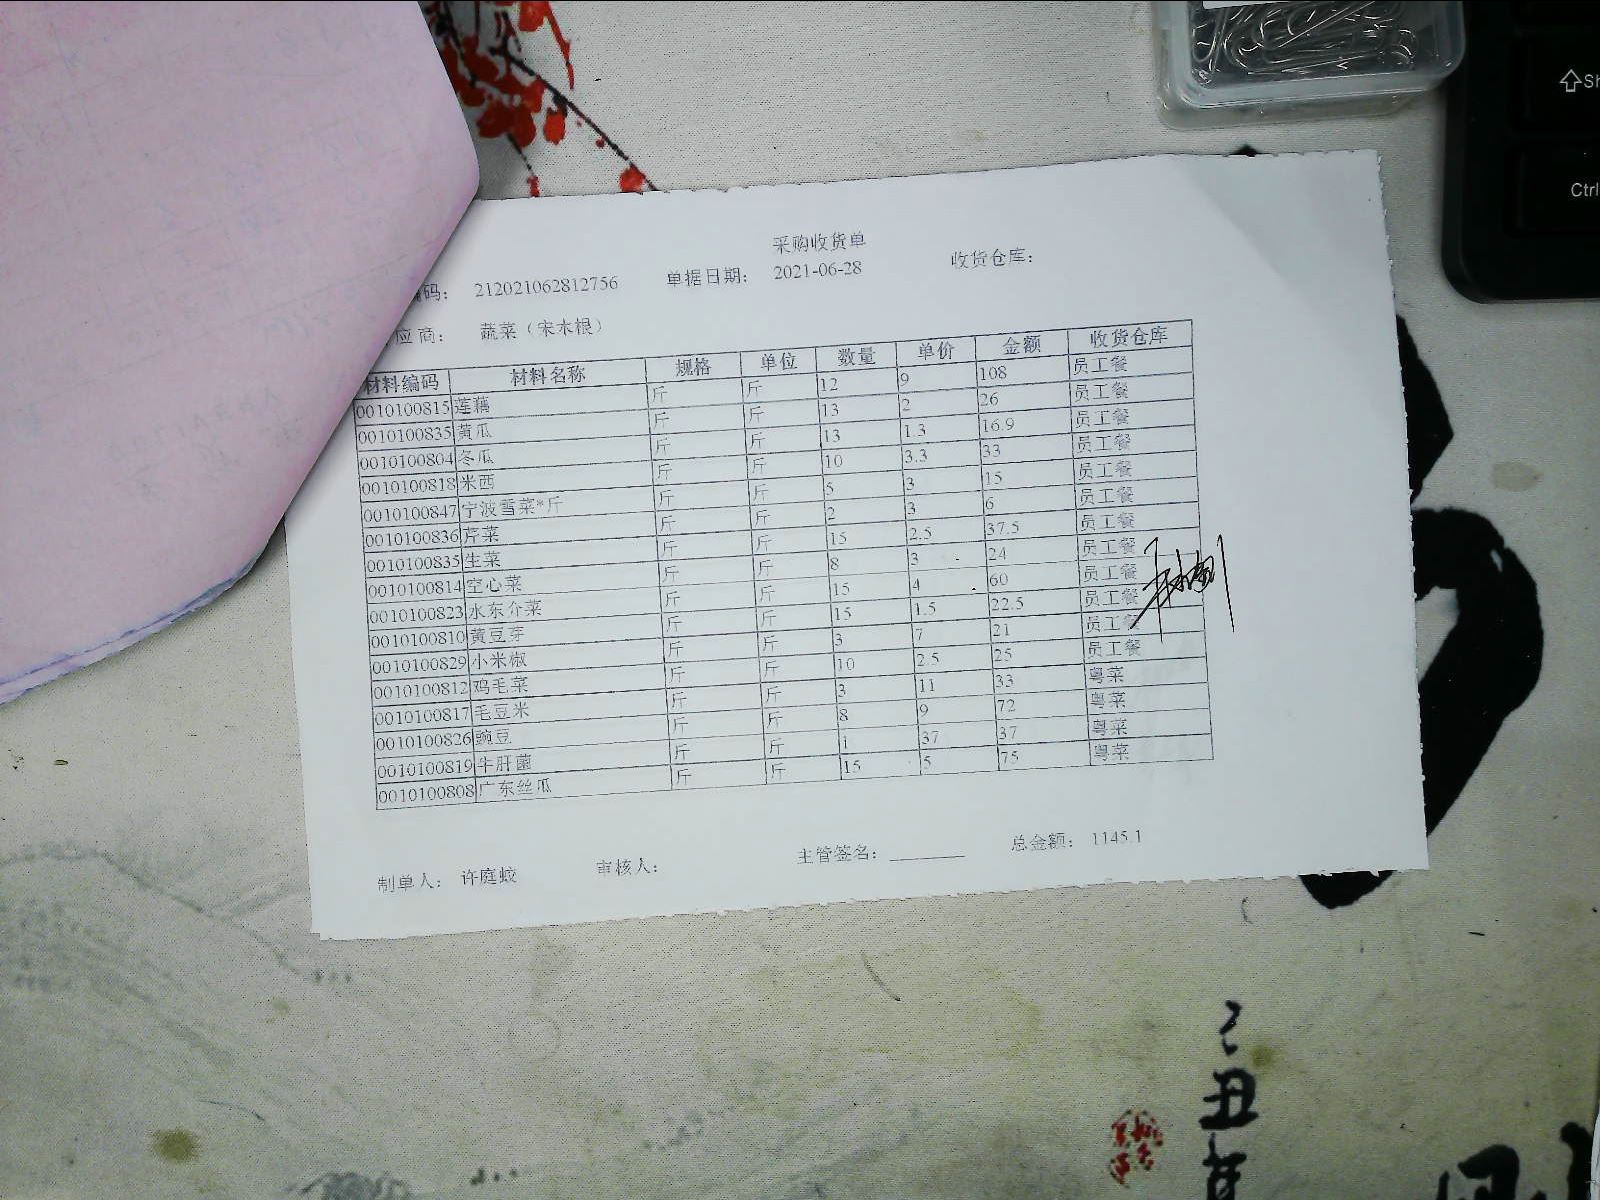 采购收货单
码: 212021062812756 单据日期: 2021-06-28 收货仓库:
应商: 蔬菜（宋木根）
材料编码 材料名称 规格 单位 数量 单价 金额 收货仓库
0010100815 莲藕 斤 斤 12 9 108 员工餐
0010100835 黄瓜 斤 斤 13 2 26 员工餐
0010100804 冬瓜 斤 斤 13 1.3 16.9 员工餐
0010100818 米西 斤 斤 10 3.3 33 员工餐
0010100847 宁波雪菜*斤 斤 斤 5 3 15 员工餐
0010100836 芹菜 斤 斤 2 3 6 员工餐
0010100835 生菜 斤 斤 15 2.5 37.5 员工餐
0010100814 空心菜 斤 斤 8 3 24 员工餐
0010100823 水东介菜 斤 斤 15 4 60 员工餐
0010100810 黄豆芽 斤 斤 15 1.5 22.5 员工餐
0010100829 小米椒 斤 斤 3 7 21 员工餐
0010100812 鸡毛菜 斤 斤 10 2.5 25 员工餐
0010100817 毛豆米 斤 斤 3 11 33 粤菜
0010100826 豌豆 斤 斤 8 9 72 粤菜
0010100819 牛肝菌 斤 斤 1 37 37 粤菜
0010100808 广东丝瓜 斤 斤 15 5 75 粤菜
制单人: 许庭蛟 审核人: 主管签名: 总金额: 1145.1
Ctrl
丑